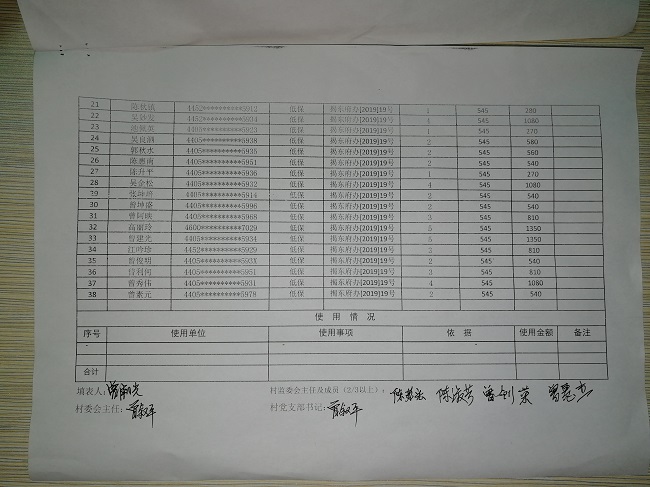 21 4452**********3912 低保 揭东府办[2019]19号 545
22 4452**********3934 低保 揭东府办[2019]19号 4 545 1080
23 4405**********5923 低保 揭东府办[2019]19号 1 545 270
24 吴良洲 4405**********5938 低保 揭东府办[2019]19号 2 545 580
25 郭秋水 4405**********5935 低保 揭东府办[2019]19号 2 545 560
26 陈惠南 4405**********5951 低保 揭东府办[2019]19号 2 545 540
27 陈升平 4405**********5936 低保 揭东府办[2019]19号 1 545 270
28 吴金松 4405**********5932 低保 揭东府办[2019]19号 4 545 1080
29 4405**********5914 低保 揭东府办[2019]19号 2 545 540
30 曾坤盛 4405**********5996 低保 揭东府办[2019]19号 2 545 540
31 曾阿映 4405**********5968 低保 揭东府办[2019]19号 3 545 810
32 高丽玲 4600**********7029 低保 揭东府办[2019]19号 5 545 1350
33 曾建光 4405**********5934 低保 揭东府办[2019]19号 5 545 1350
34 江吟珍 4452**********5929 低保 揭东府办[2019]19号 3 545 810
35 曾俊明 4405**********593X 低保 揭东府办[2019]19号 2 545 540
36 曾利何 4405**********5951 低保 揭东府办[2019]19号 3 545 810
37 曾秀伟 4405**********5931 低保 揭东府办[2019]19号 4 545 1080
38 曾素元 4405**********5978 低保 揭东府办[2019]19号 2 545 540
使 用 情 况
序号 使用单位 使用事项 依 据 使用金额 备注
合计
填表人: 村监委会主任及成员（2/3以上）:
村委会主任: 村党支部书记: